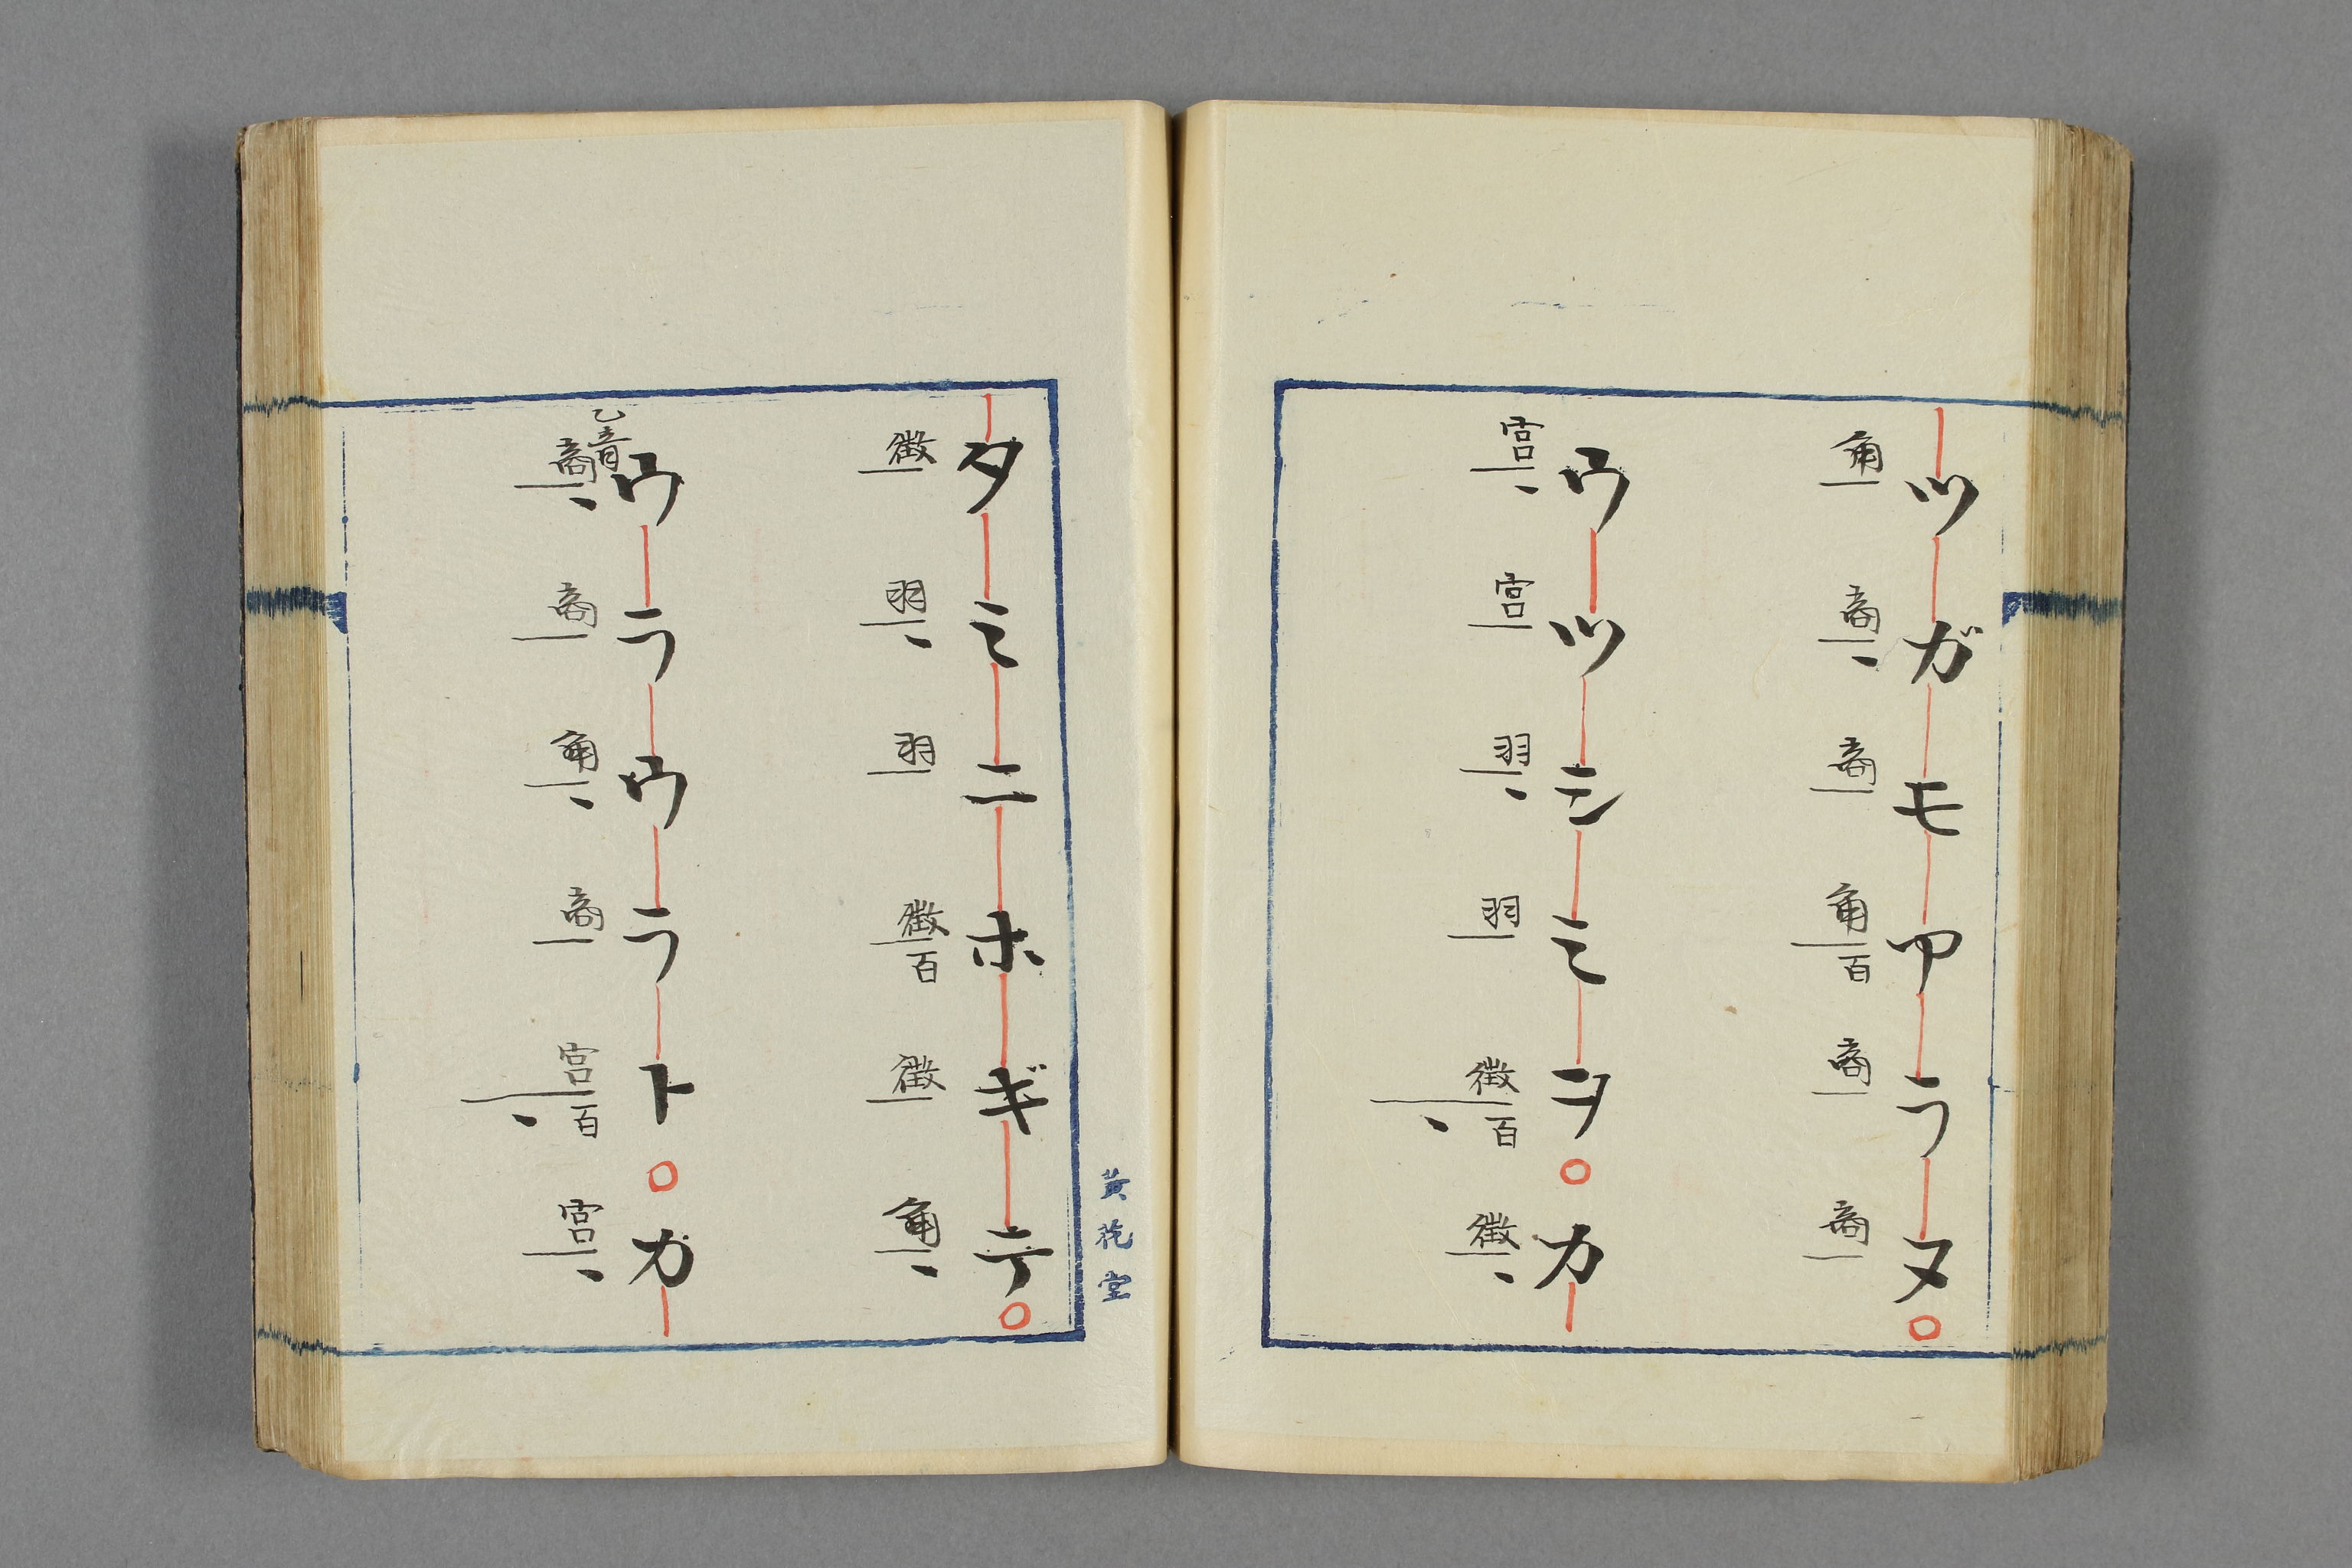 ツガモアラヌ○
角 商 商 角百 商 商
ウツシミヲ○カ
宮 宮 羽 羽 徴百 徴
黄花堂
タミニホギテ○
徴 羽 羽 徴百 徴 角
ウラウラト○カ
乙音
商 商 角 商 宮百 宮